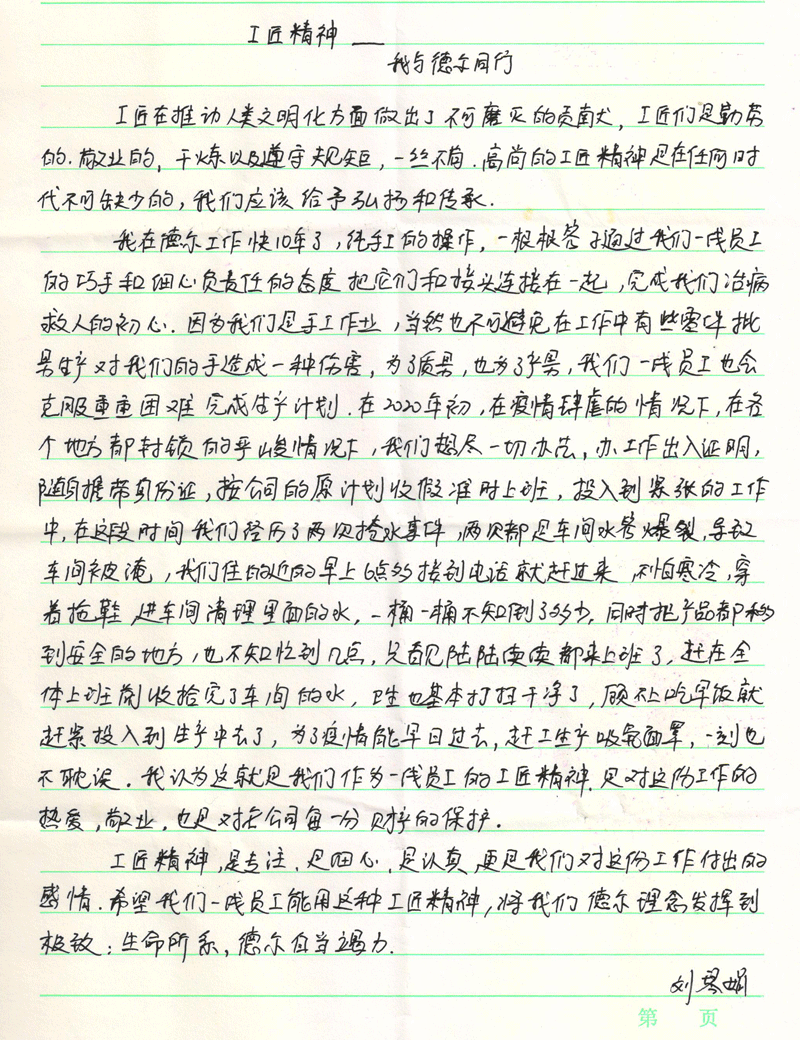 工匠精神 ——
我与德尔同行
工匠在推动人类文明化方面做出了不可磨灭的贡献,工匠们是勤劳
的.敬业的,干炼以及遵守规矩,一丝不苟.高尚的工匠精神是在任何时
代不可缺少的,我们应该给予弘扬和传承.
我在德尔工作快10年了,纯手工的操作,一根根管子通过我们一线员工
的巧手和细心负责任的态度把它们和接头连接在一起,完成我们治病
救人的初心.因为我们是手工作业,当然也不可避免在工作中有些零件批
量生产对我们的手造成一种伤害,为了质量,也为了产量,我们一线员工也会
克服重重困难完成生产计划.在2020年初,在疫情肆虐的情况下,在各
个地方都封锁的严峻情况下,我们想尽一切办法,办工作出入证明,
随身携带身份证,按公司的原计划收假准时上班,投入到紧张的工作
中,在这段时间我们经历了两次抢水事件,两次都是车间水管爆裂,导致
车间被淹,我们住的近的早上6点多接到电话就赶过来,不怕寒冷,穿
着拖鞋,进车间清理里面的水,一桶一桶不知倒了多少,同时把产品都移
到安全的地方,也不知忙到几点,只看见陆陆续续都来上班了,赶在全
体上班前收拾完了车间的水,卫生也基本打扫干净了,顾不上吃早饭就
赶紧投入到生产中去了,为了疫情能早日过去,赶工生产吸氧面罩,一刻也
不耽误.我认为这就是我们作为一线员工的工匠精神.是对这份工作的
热爱,敬业,也是对老公司每一分财产的保护.
工匠精神,是专注.是细心.是认真,更是我们对这份工作付出的
感情.希望我们一线员工能用这种工匠精神,将我们德尔理念发挥到
极致:生命所系,德尔自当竭力.
刘琴娟
第 页